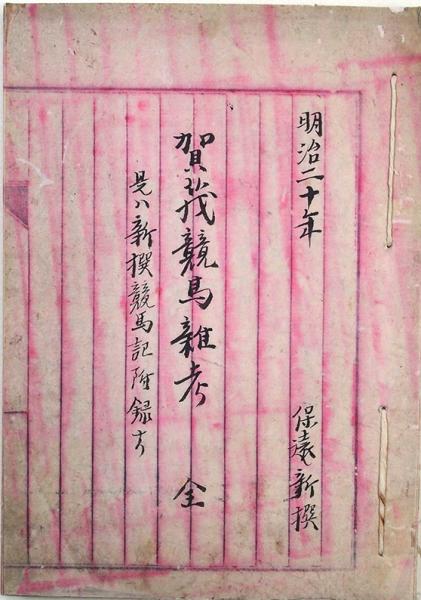 明治二十年
保遠新撰
賀茂競馬雜考 全
是ハ新撰競馬記附録